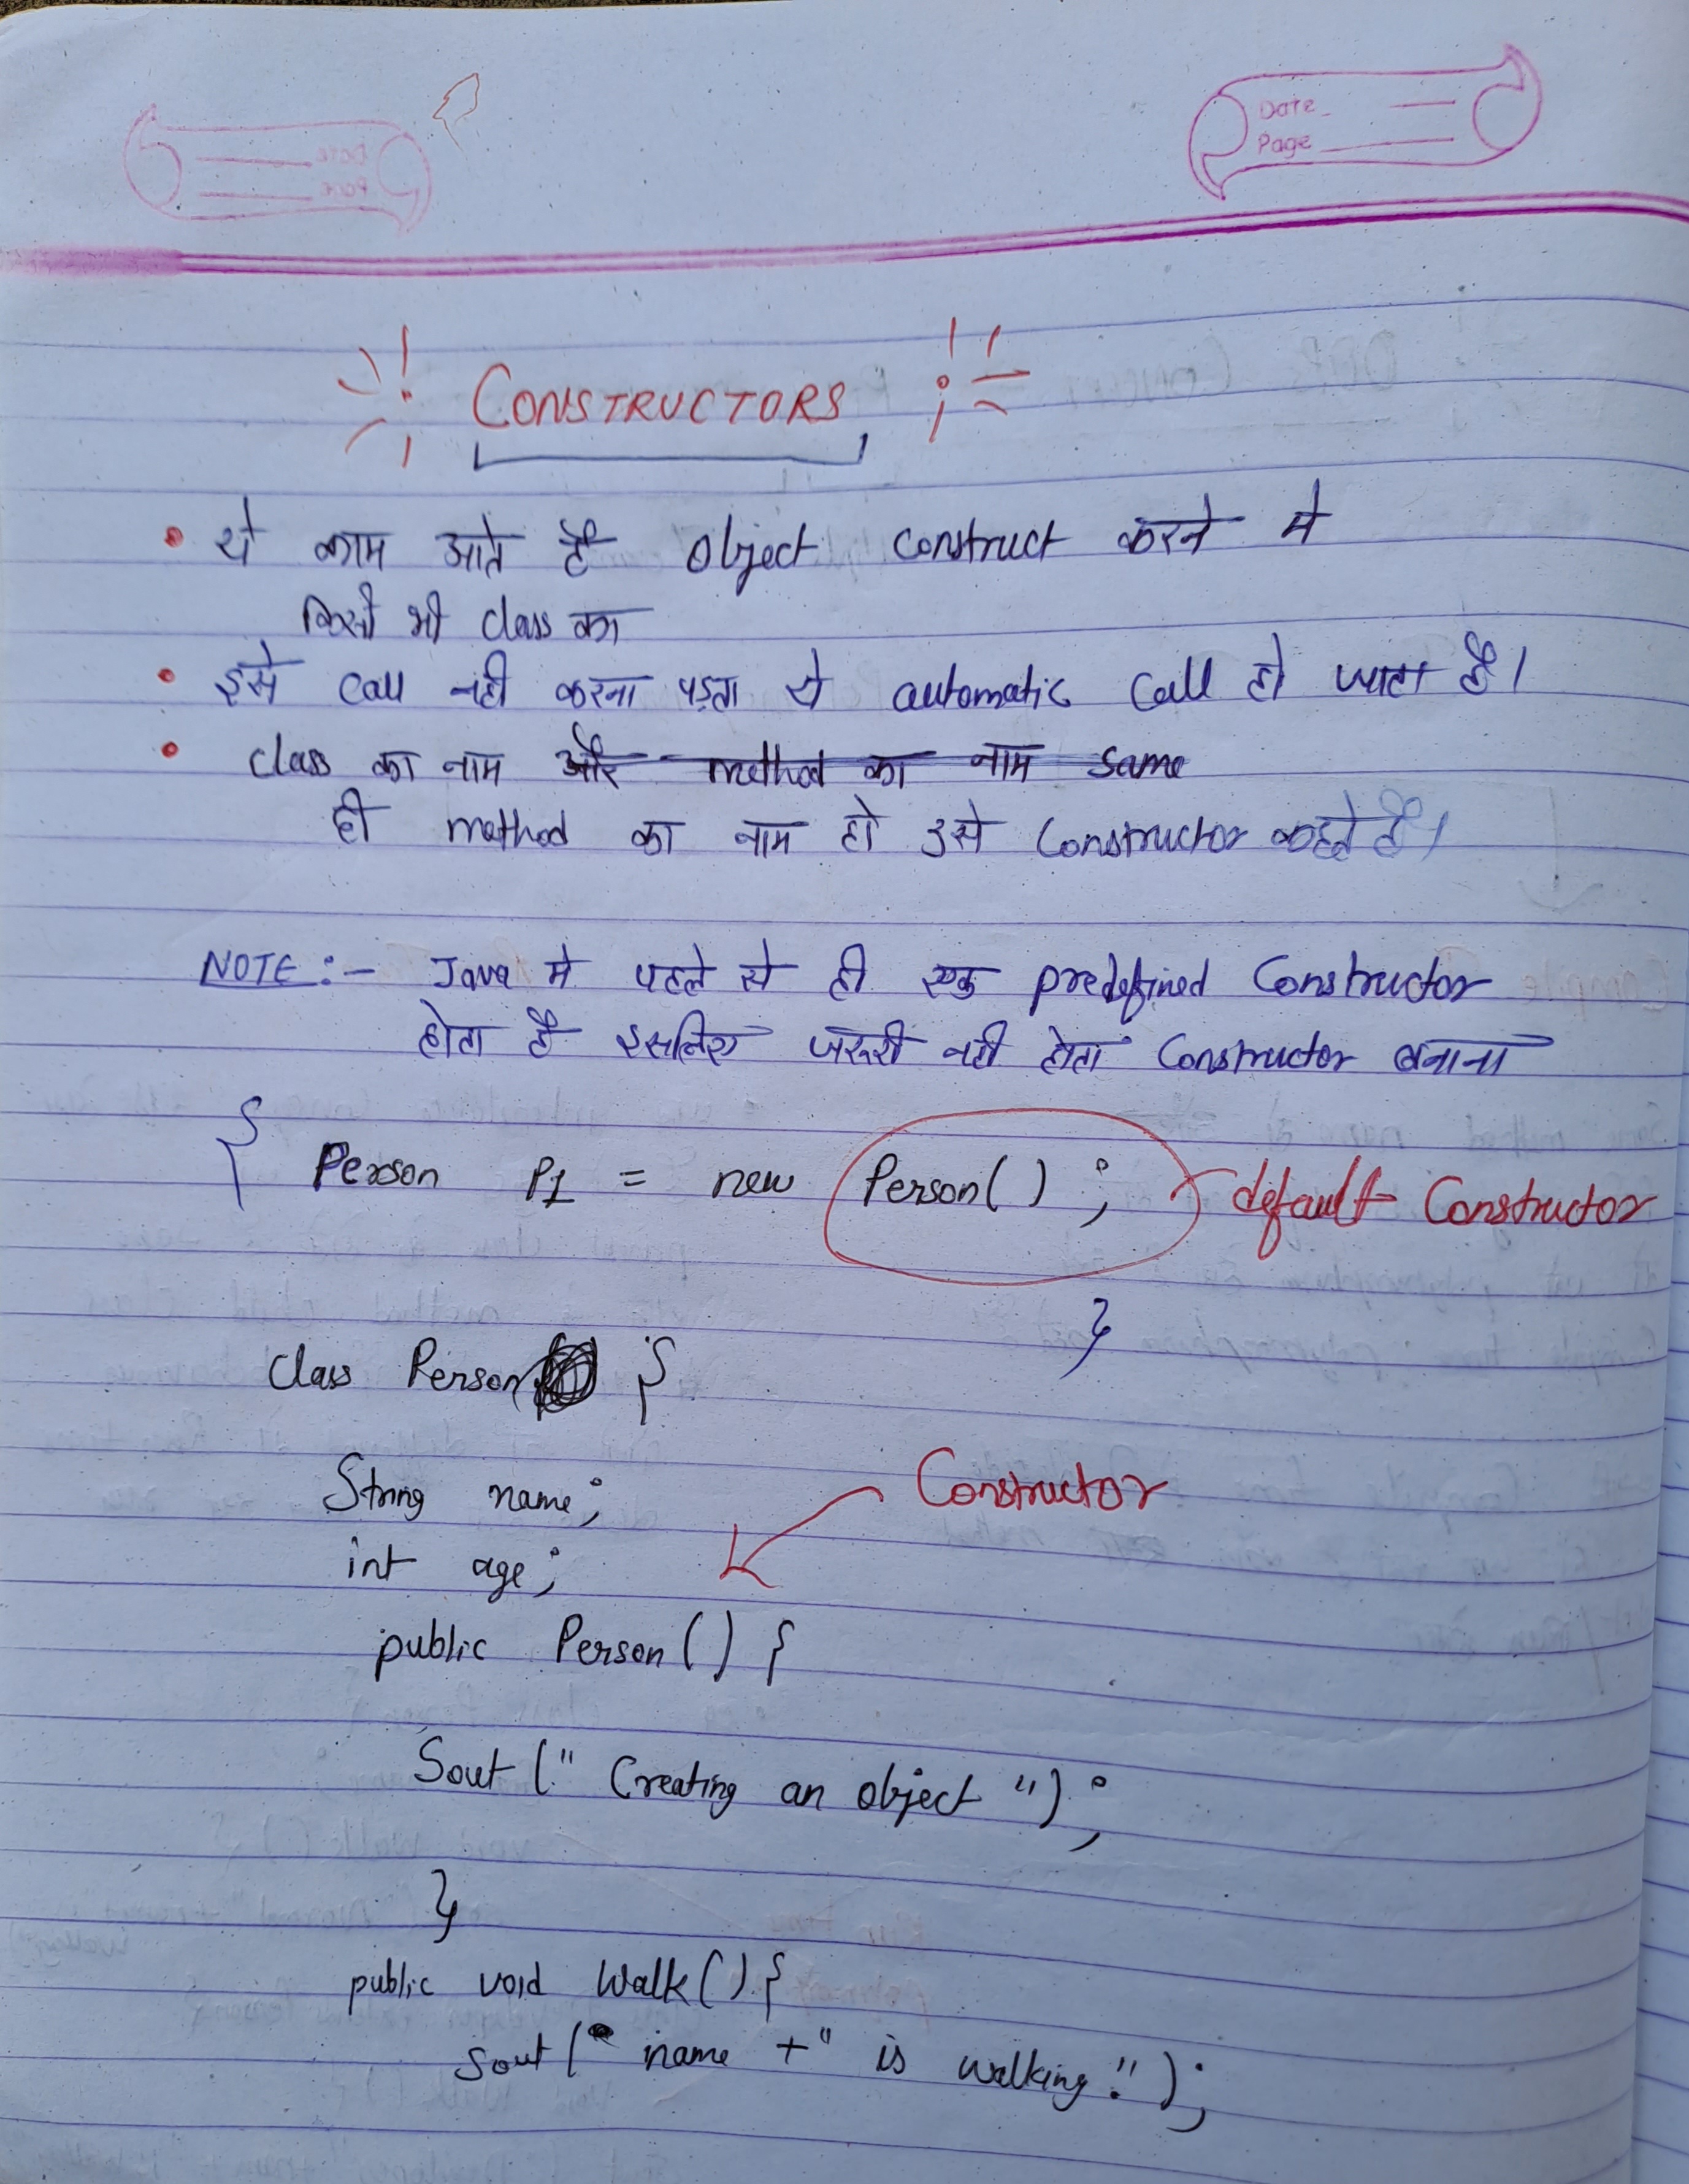 Date
Page
CONSTRUCTORS
• ये काम आते है object construct करने मे
किसी भी class का
• इसे call नही करना पड़ता ये automatic call हो जाता है।
• class का नाम और method का नाम same
ही method का नाम हो उसे Constructor कहते है।
NOTE :- Java मे पहले से ही एक predefined Constructor
होता है इसलिए जरूरी नही होता Constructor बनाना
{ Person P1 = new Person() ; default Constructor
}
Class Person {
String name;
int age;
Constructor
public Person() {
Sout (" Creating an object ");
}
public void Walk() {
Sout ( name + " is walking.");